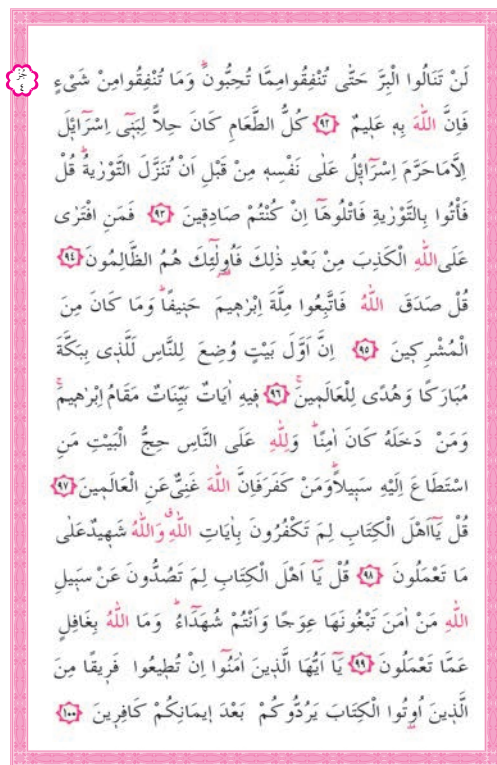 لَنْ تَنَالُوا الْبِرَّ حَتّٰى تُنْفِقُوامِمَّا تُحِبُّونَۜ وَمَا تُنْفِقُوامِنْ شَیْءٍ
جُزْ ٤
فَاِنَّ اللّٰهَ بِهٖ عَلٖيمٌ ﴿٩٢﴾ كُلُّ الطَّعَامِ كَانَ حِلاًّ لِبَنٖٓى اِسْرَٓائٖلَ
اِلَّامَاحَرَّمَ اِسْرَٓائٖلُ عَلٰى نَفْسِهٖ مِنْ قَبْلِ اَنْ تُنَزَّلَ التَّوْرٰيةُؕ قُلْ
فَأْتُوا بِالتَّوْرٰيةِ فَاتْلُوهَٓا اِنْ كُنْتُمْ صَادِقٖينَ ﴿٩٣﴾ فَمَنِ افْتَرٰى
عَلَى اللّٰهِ الْكَذِبَ مِنْ بَعْدِ ذٰلِكَ فَاُولٰٓئِكَ هُمُ الظَّالِمُونَ ﴿٩٤﴾
قُلْ صَدَقَ اللّٰهُ فَاتَّبِعُوا مِلَّةَ اِبْرٰهٖيمَ حَنٖيفًاؕ وَمَا كَانَ مِنَ
الْمُشْرِكٖينَ ﴿٩٥﴾ اِنَّ اَوَّلَ بَيْتٍ وُضِعَ لِلنَّاسِ لَلَّذٖى بِبَكَّةَ
مُبَارَكًا وَهُدًى لِلْعَالَمٖينَۚ ﴿٩٦﴾ فٖيهِ اٰيَاتٌ بَيِّنَاتٌ مَقَامُ اِبْرٰهٖيمَۚ
وَمَنْ دَخَلَهُ كَانَ اٰمِنًاؕ وَلِلّٰهِ عَلَى النَّاسِ حِجُّ الْبَيْتِ مَنِ
اسْتَطَاعَ اِلَيْهِ سَبٖيلاًؕ وَمَنْ كَفَرَ فَاِنَّ اللّٰهَ غَنِىٌّ عَنِ الْعَالَمٖينَ ﴿٩٧﴾
قُلْ يَٓااَهْلَ الْكِتَابِ لِمَ تَكْفُرُونَ بِاٰيَاتِ اللّٰهِۗ وَاللّٰهُ شَهٖيدٌ عَلٰى
مَا تَعْمَلُونَ ﴿٩٨﴾ قُلْ يَٓا اَهْلَ الْكِتَابِ لِمَ تَصُدُّونَ عَنْ سَبٖيلِ
اللّٰهِ مَنْ اٰمَنَ تَبْغُونَهَا عِوَجًا وَاَنْتُمْ شُهَدَٓاءُؕ وَمَا اللّٰهُ بِغَافِلٍ
عَمَّا تَعْمَلُونَ ﴿٩٩﴾ يَٓا اَيُّهَا الَّذٖينَ اٰمَنُٓوا اِنْ تُطٖيعُوا فَرٖيقًا مِنَ
الَّذٖينَ اُو۫تُوا الْكِتَابَ يَرُدُّوكُمْ بَعْدَ اٖيمَانِكُمْ كَافِرٖينَ ﴿١٠٠﴾